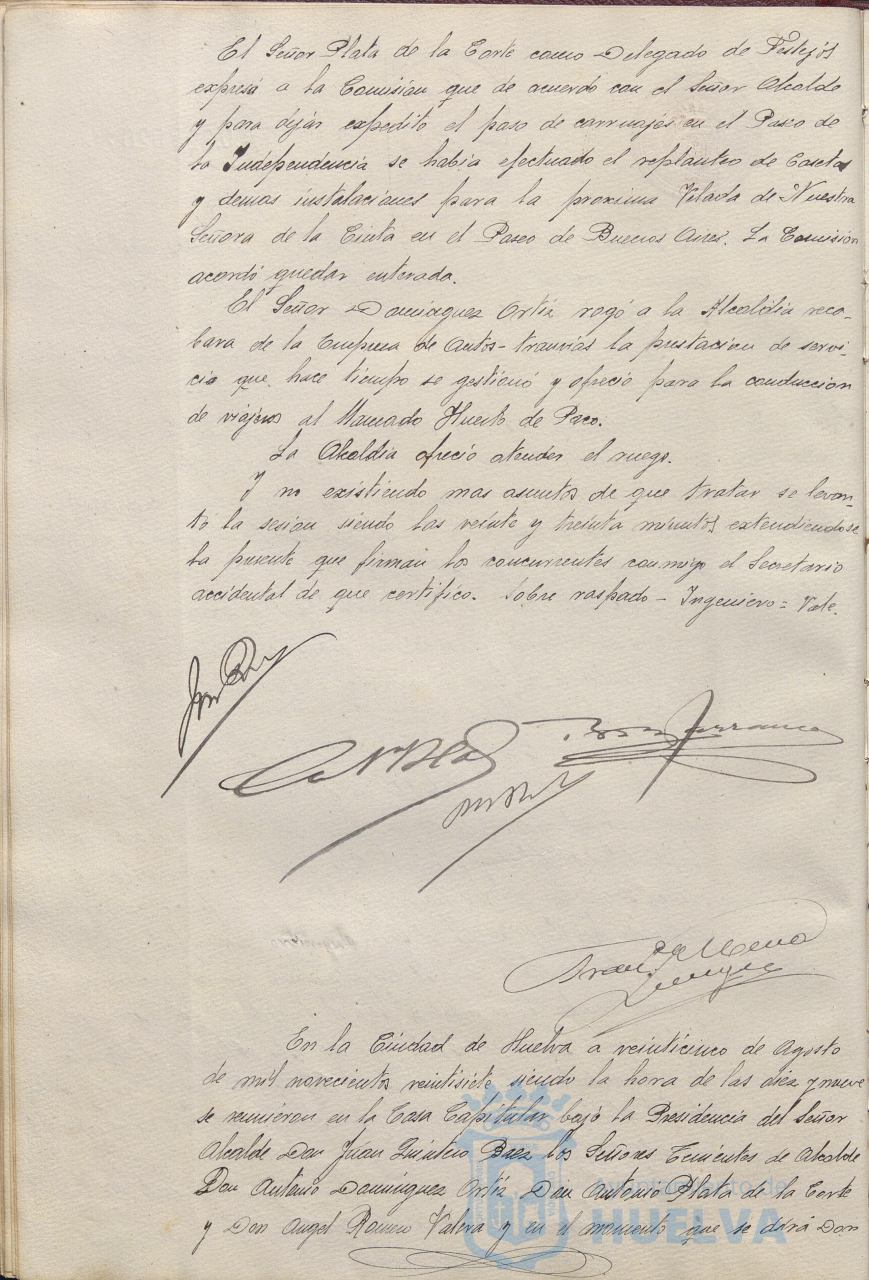 El Señor Plata de la Corte como Delegado de Festejos
expresó a la Comisión que de acuerdo con el Señor Alcalde
y para dejar expedito el paso de carruajes en el Paseo de
la Independencia se habia efectuado el replanteo de Casetas
y demas instalaciones para la proxima Velada de Nuestra
Señora de la Cinta en el Paseo de Buenos Aires. La Comisión
acordó quedar enterada.
El Señor Dominguez Ortiz rogó a la Alcaldia reco-
bara de la Empresa de Autos-tranvias la prestacion de servi-
cio que hace tiempo se gestionó y ofreció para la conduccion
de viajeros al llamado Huerto de Paco.
La Alcaldia ofreció atender el ruego.
Y no existiendo mas asuntos de que tratar se levan-
tó la sesion siendo las veinte y treinta minutos extendiendose
la presente que firman los concurrentes conmigo el Secretario
accidental de que certifico. Sobre raspado - Ingeniero = Vale.
En la Ciudad de Huelva a veinticinco de Agosto
de mil novecientos veintisiete siendo la hora de las diez y nueve
se reunieron en la Casa Capitular bajo la Presidencia del Señor
Alcalde Don Juan Quintero Baez los Señores Tenientes de Alcalde
Don Antonio Dominguez Ortiz Don Antonio Plata de la Corte
y Don Angel Romero Valera y en el momento que se dirá Don
Ayuntamiento de
HUELVA